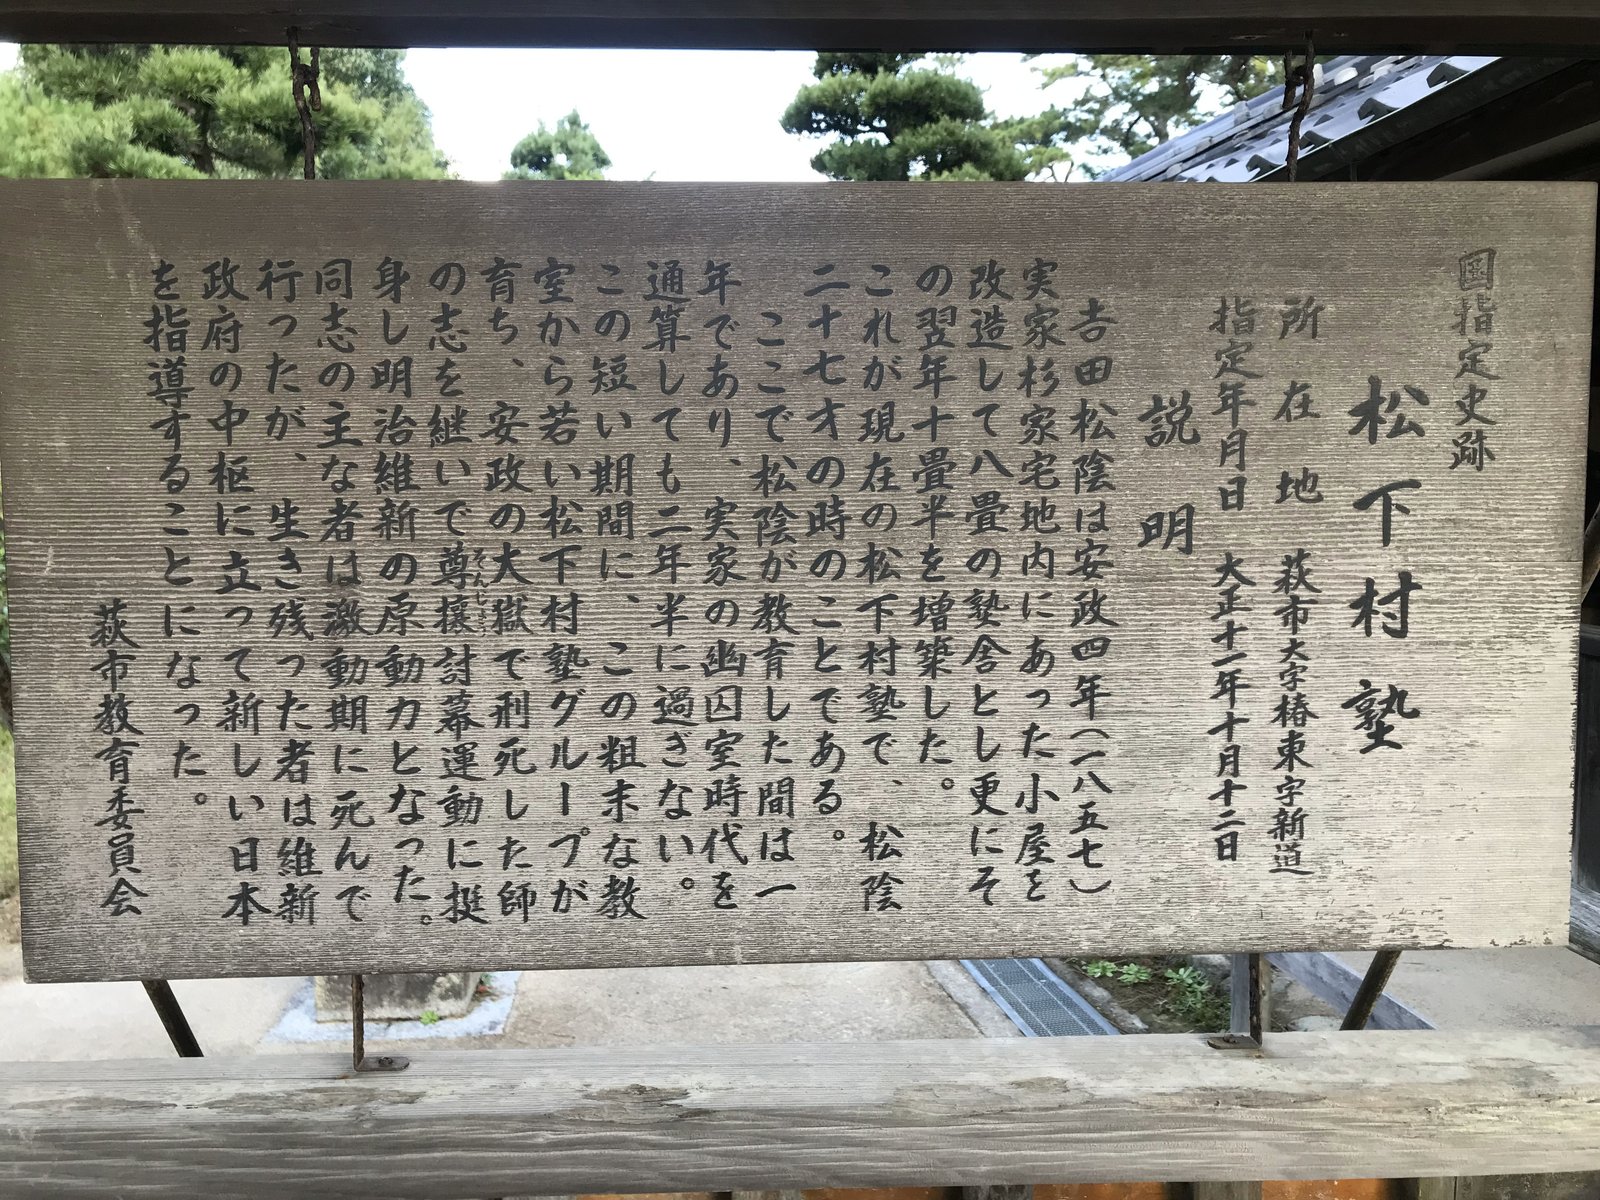 国指定史跡
松下村塾
所在地 萩市大字椿東字新道
指定年月日 大正十一年十月十二日
説明
吉田松陰は安政四年（一八五七）
実家杉家宅地内にあった小屋を
改造して八畳の塾舎とし更にそ
の翌年十畳半を増築した。
これが現在の松下村塾で、松陰
二十七才の時のことである。
ここで松陰が教育した間は一
年であり、実家の幽囚室時代を
通算しても二年半に過ぎない。
この短い期間に、この粗末な教
室から若い松下村塾グループが
育ち、安政の大獄で刑死した師
の志を継いで尊攘討幕運動に挺
そんじょう
身し明治維新の原動力となった。
同志の主な者は激動期に死んで
行ったが、生き残った者は維新
政府の中枢に立って新しい日本
を指導することになった。
萩市教育委員会